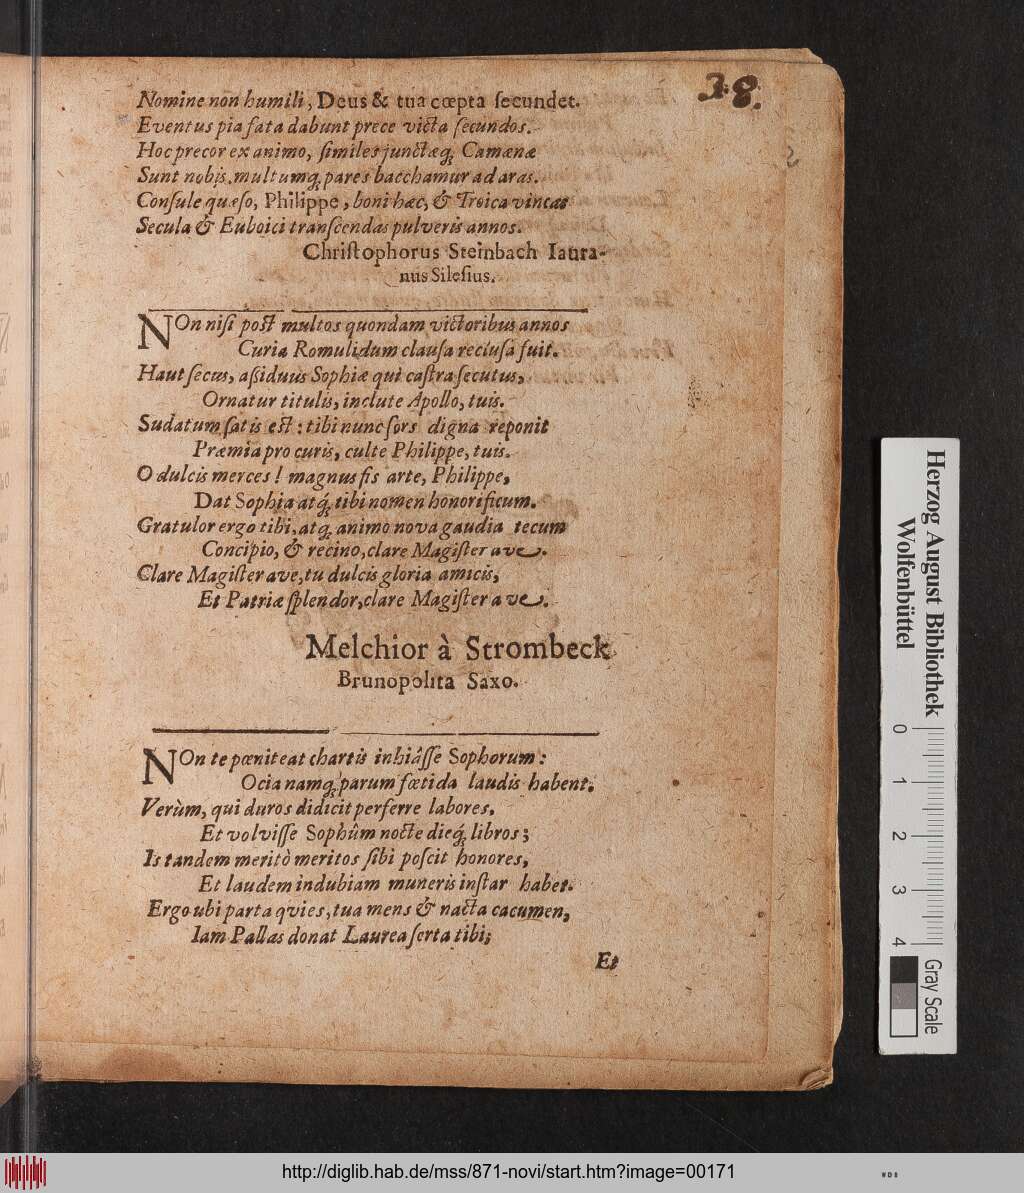 38.
Nomine non humili, Deus & tua cœpta ſecundet.
Eventus pia fata dabunt prece victa ſecundos.
Hoc precor ex animo, ſimiles junctæq́; Camœnæ
Sunt nobis, multumq́; pares bacchamur ad aras.
Conſule quæſo, Philippe, boni hæc, & Troica vincas
Secula & Euboici tranſcendas pulveris annos.
Chriſtophorus Steinbach Iaura-
nus Sileſius.
NOn niſi poſt multos quondam victoribus annos
Curia Romulidum clauſa recluſa fuit.
Haut ſecus, aßiduus Sophiæ qui caſtra ſecutus,
Ornatur titulis, inclute Apollo, tuis.
Sudatum ſatis eſt: tibi nunc ſors digna reponit
Præmia pro curis, culte Philippe, tuis.
O dulcis merces! magnus fis arte, Philippe,
Dat Sophia atq́; tibi nomen honorificum.
Gratulor ergo tibi, atq́; animo nova gaudia tecum
Concipio, & recino, clare Magiſter ave.
Clare Magiſter ave, tu dulcis gloria amicis,
Et Patriæ ſplendor, clare Magiſter ave.
Melchior à Strombeck
Brunopolita Saxo.
NOn te pœniteat chartis inhiâſſe Sophorum:
Ocia namq́; parum fœtida laudis habent.
Verùm, qui duros didicit perferre labores,
Et volviſſe Sophûm nocte dieq́; libros;
Is tandem meritò meritos ſibi poſcit honores,
Et laudem indubiam muneris inſtar habet.
Ergo ubi parta qvies, tua mens & nacta cacumen,
Iam Pallas donat Laurea ſerta tibi;
Et
Herzog August Bibliothek
Wolfenbüttel
0 1 2 3 4
Gray Scale
http://diglib.hab.de/mss/871-novi/start.htm?image=00171